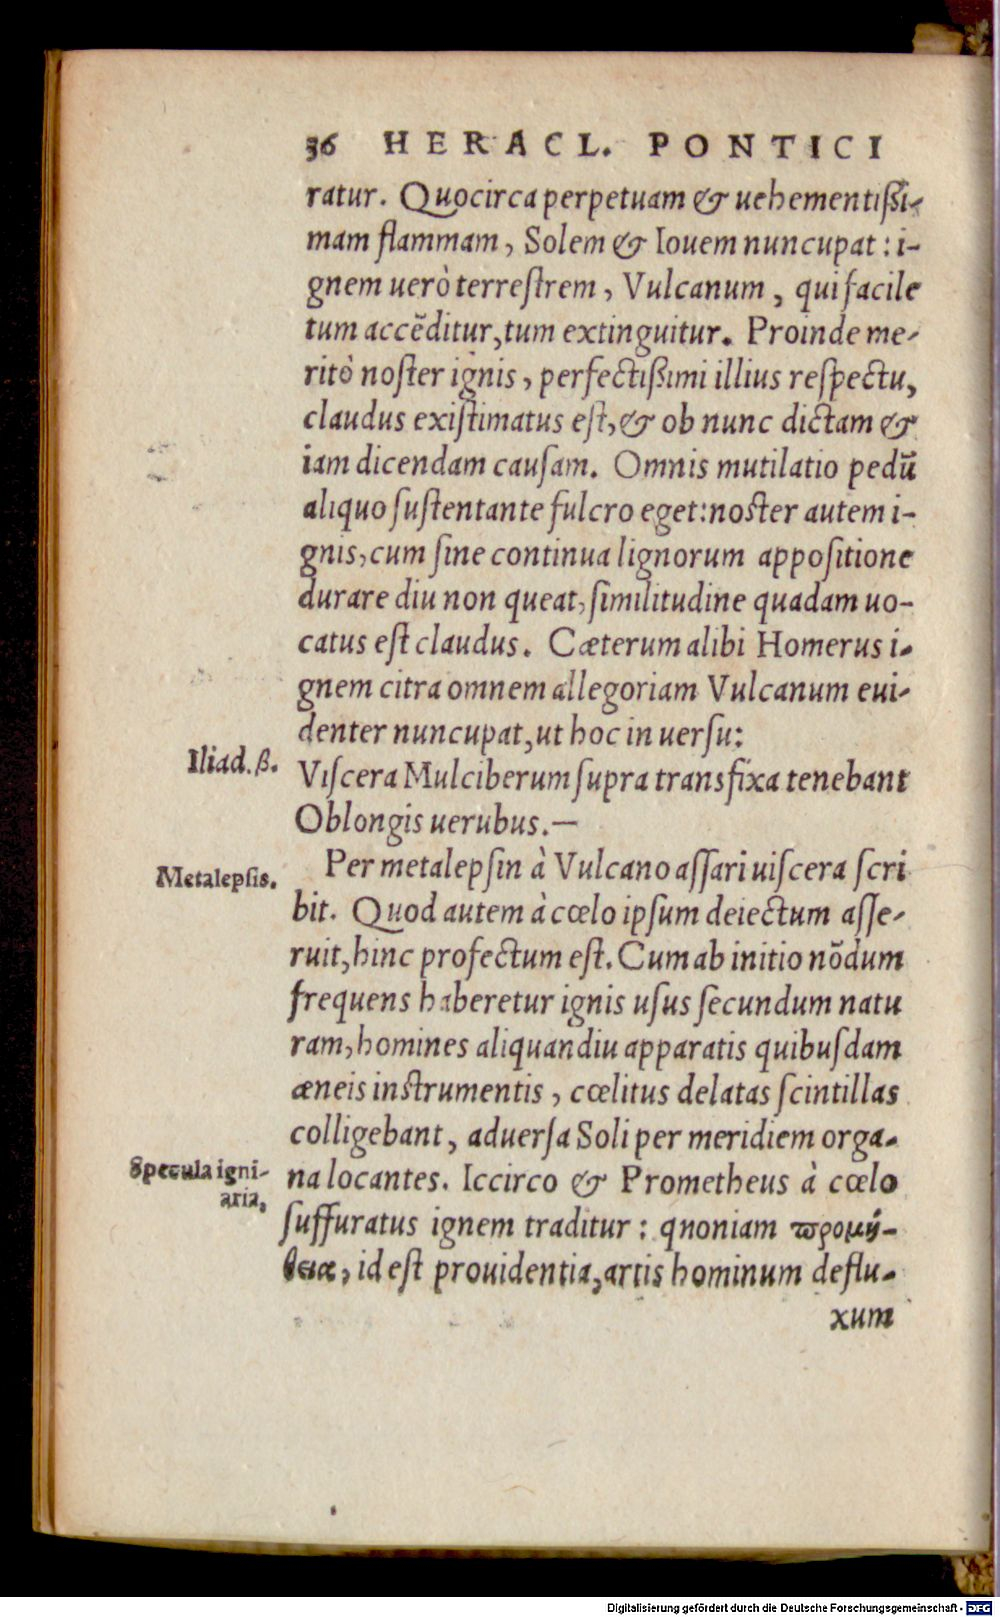 36 HERACL. PONTICI
ratur. Quocirca perpetuam & uehementißi-
mam flammam, Solem & Iouem nuncupat: i-
gnem uerò terreſtrem, Vulcanum, qui facile
tum accẽditur, tum extinguitur. Proinde me-
ritò noſter ignis, perfectißimi illius reſpectu,
claudus exiſtimatus eſt, & ob nunc dictam &
iam dicendam cauſam. Omnis mutilatio pedũ
aliquo ſuſtentante fulcro eget: noſter autem i-
gnis, cum ſine continua lignorum appoſitione
durare diu non queat, ſimilitudine quadam uo-
catus eſt claudus. Cæterum alibi Homerus i-
gnem citra omnem allegoriam Vulcanum eui-
denter nuncupat, ut hoc in uerſu:
Iliad. β.
Viſcera Mulciberum ſupra transfixa tenebant
Oblongis uerubus.—
Metalepſis.
Per metalepſin à Vulcano aſſari uiſcera ſcri
bit. Quod autem à cœlo ipſum deiectum aſſe-
ruit, hinc profectum eſt. Cum ab initio nõdum
frequens haberetur ignis uſus ſecundum natu
ram, homines aliquandiu apparatis quibuſdam
æneis inſtrumentis, cœlitus delatas ſcintillas
colligebant, aduerſa Soli per meridiem orga-
Specula igni-
aria,
na locantes. Iccirco & Prometheus à cœlo
ſuffuratus ignem traditur: qnoniam προμή-
θεια, id eſt prouidentia, artis hominum deflu-
xum
Digitalisierung gefördert durch die Deutsche Forschungsgemeinschaft - DFG